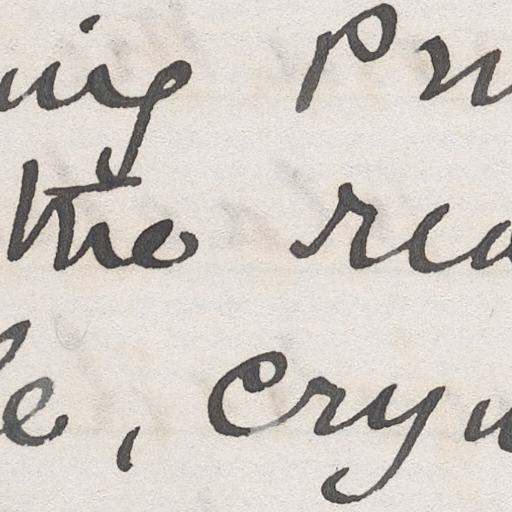 ing Pr
the rea
le, cryi